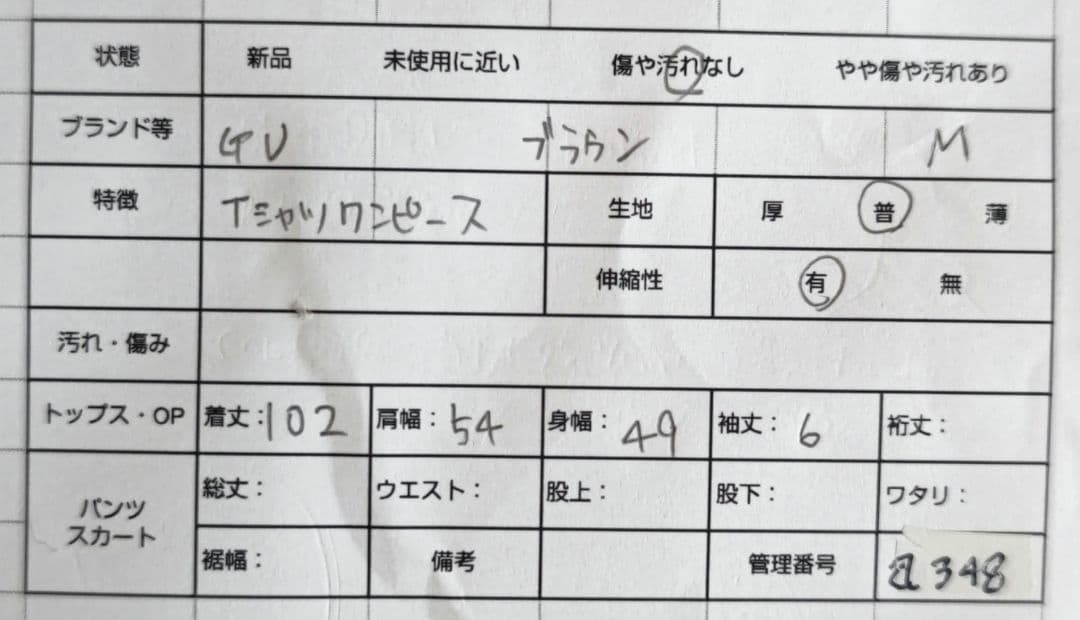 状態 新品 未使用に近い 傷や汚れなし やや傷や汚れあり
ブランド等 GU ブラウン M
特徴 Tシャツワンピース 生地 厚 普 薄
伸縮性 有 無
汚れ・傷み
トップス・OP 着丈:102 肩幅:54 身幅:49 袖丈:6 裄丈:
パンツ スカート 総丈: ウエスト: 股上: 股下: ワタリ:
裾幅: 備考 管理番号 a348